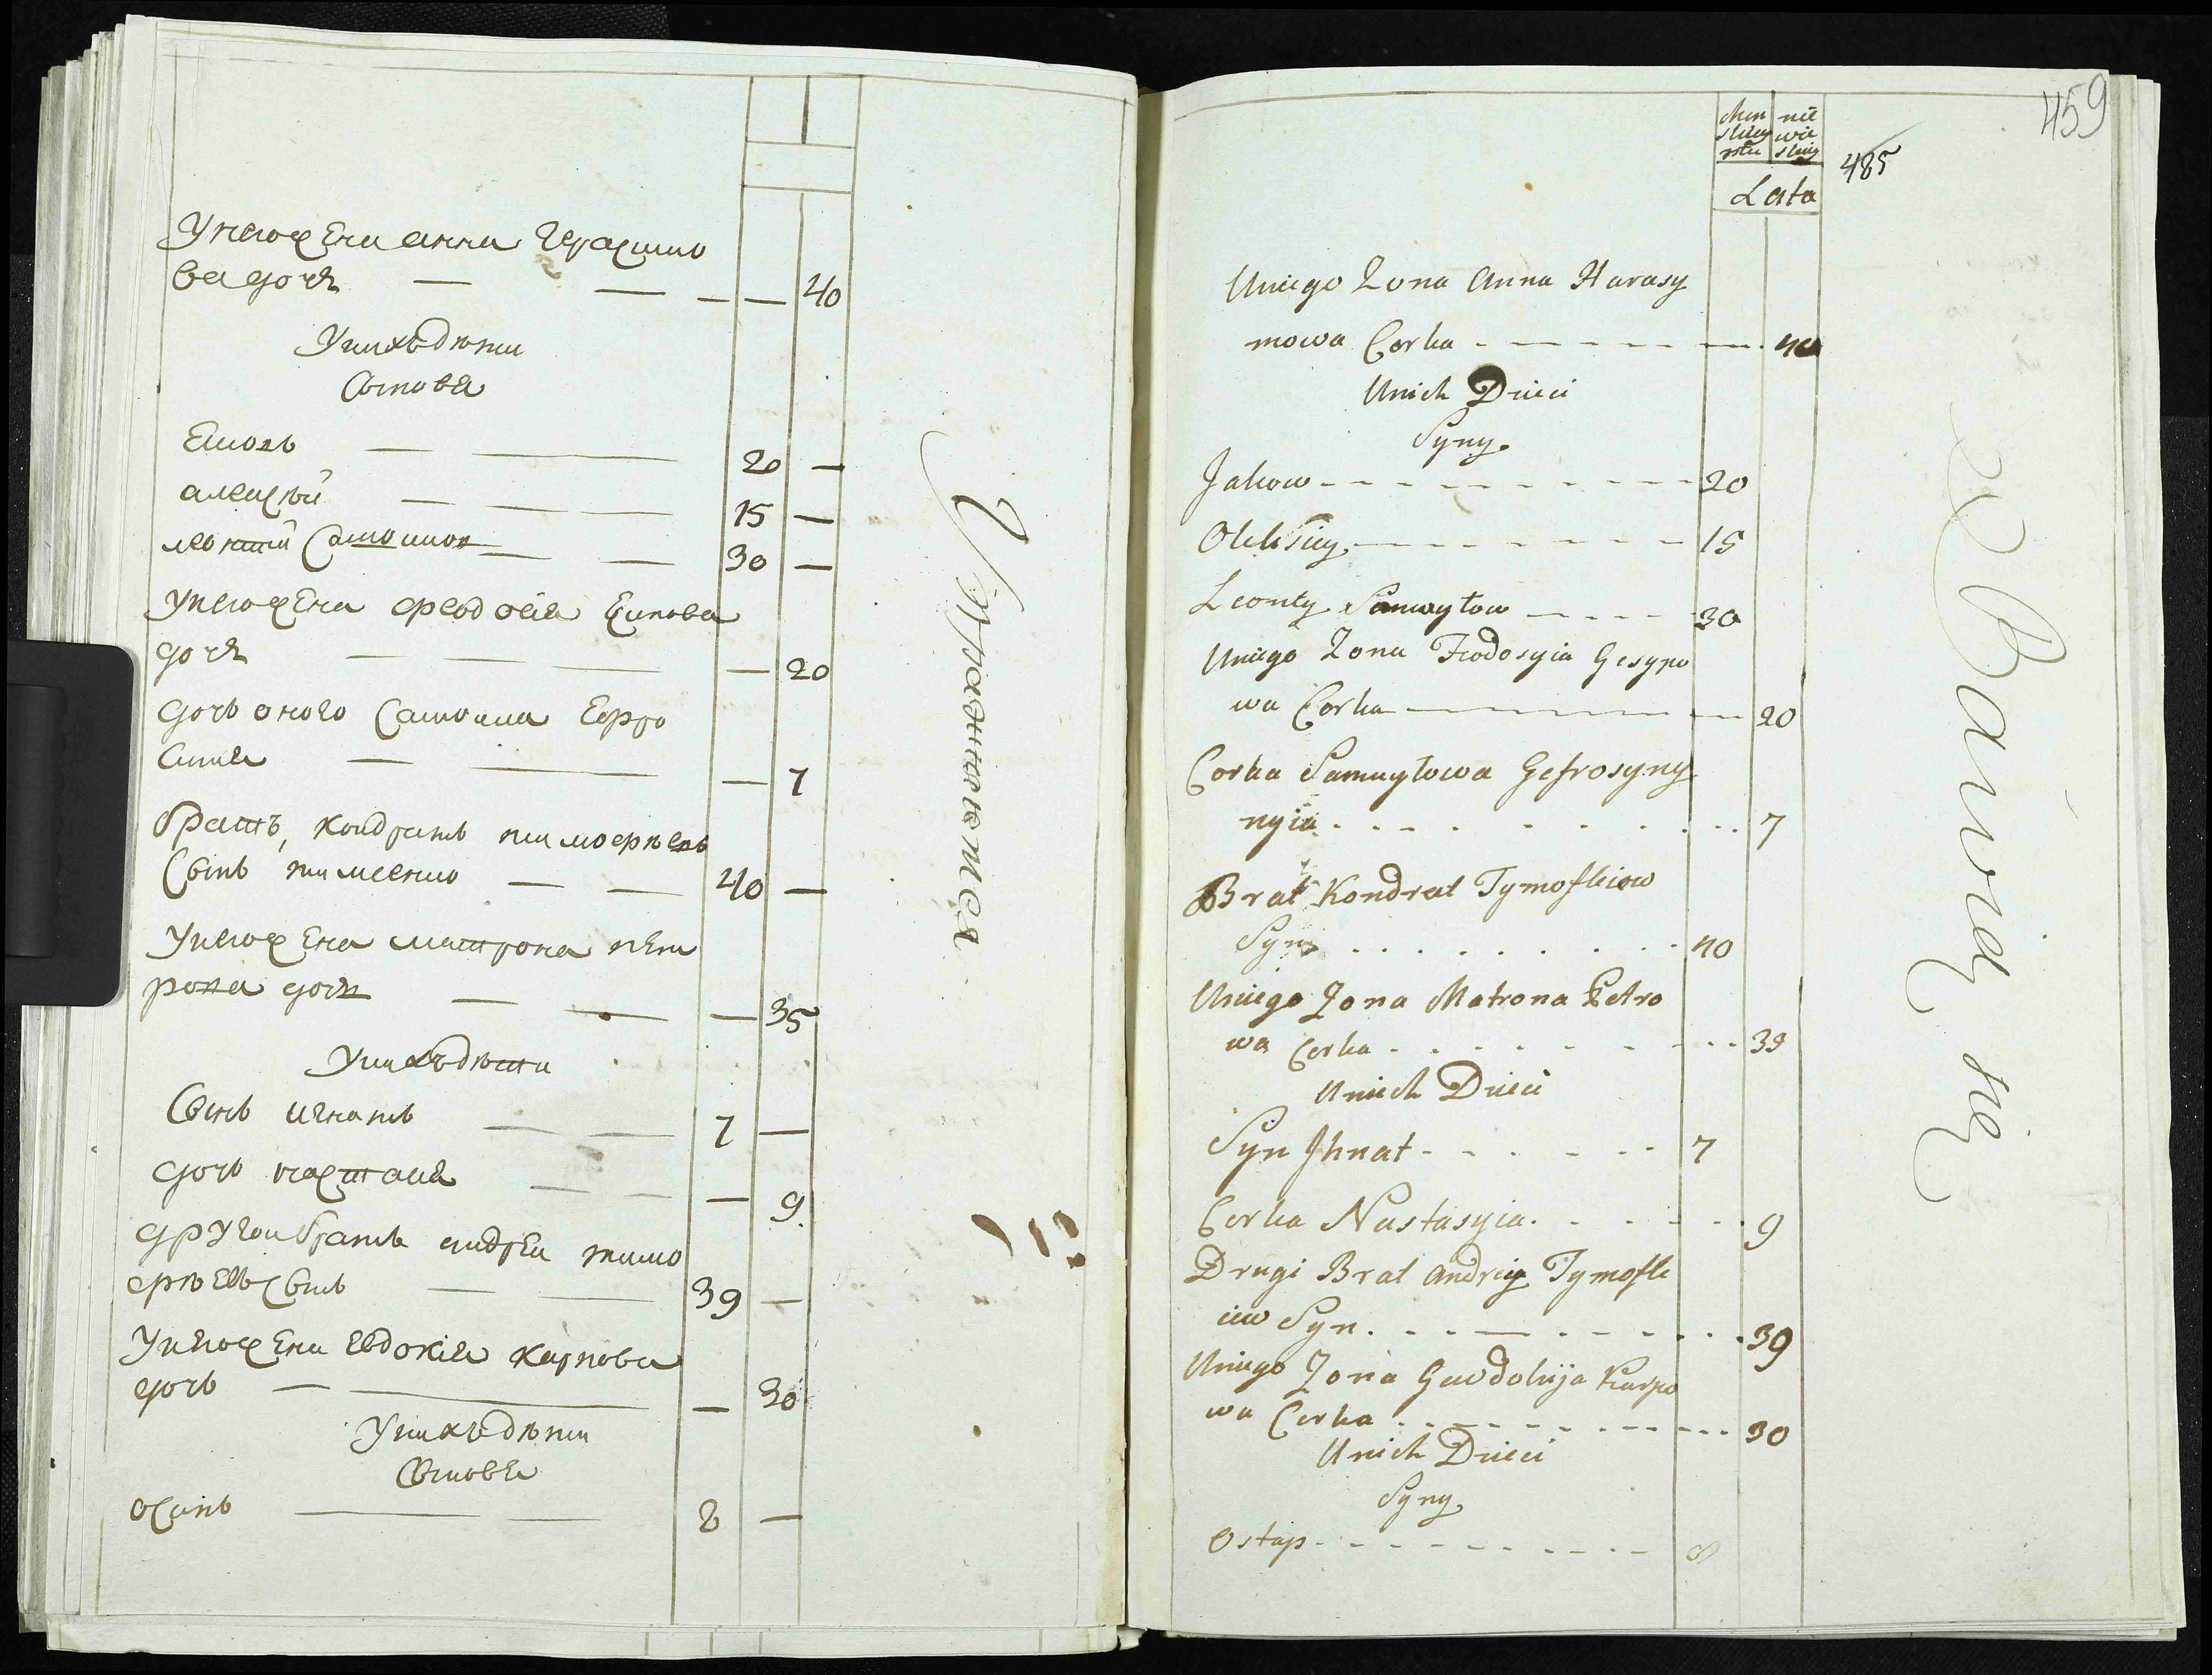 У него жена анна герасимо
ва дочь — — — — 40
У них дѣти
Сыновья
Еков — — 20 —
алексѣй — — — 15 —
леонтий Самоилов — — 30 —
У него жена феодосiя Есипова
дочь — — — — 20
дочь оного Самоила Ефро
синия — — — 7
братъ, кондратъ тимофѣевъ
Сынъ — — 40 —
У него жена матрона пет
рова дочь — — — 35
У нихъ дѣти
Сынъ игнатъ — — 7 —
дочь настасия — — — 9.
другои братъ андреи тимо
фѣевъ Сынъ — — 39 —
У него жена евдокiя карпова
дочь — — — 30
У нихъ дѣти
Сыновья
осипъ — — 8 —
459
485
Lata
Uniego Zona Anna Harasy
mowa Corka - - - - - 40
Unich Dzieci
Syny.
Jakow - - - - - - 20
Oleksiey - - - - - - 15
Leonty Samuyłow - - - - 30
Uniego Zona Fiodosyia Gesypo
wa Corka - - - 20
Corka Samuyłowa Gefrosyny
nyia - - - - - - 7
Brat Kondrat Tymofieiow
Syn - - - - - - 40
Uniego Zona Matrona Petro
wa Corka - - - - - - 39
Unich Dzieci
Syn Jhnat - - - - - 7
Corka Nastasyia - - - - - 9
Drugi Brat Andriey Tymofie
iew Syn - - - - - - 39
Uniego Zona Gewdokija Karpo
wa Corka - - - - - - 30
Unich Dzieci
Syny
Ostap - - - - - - 8